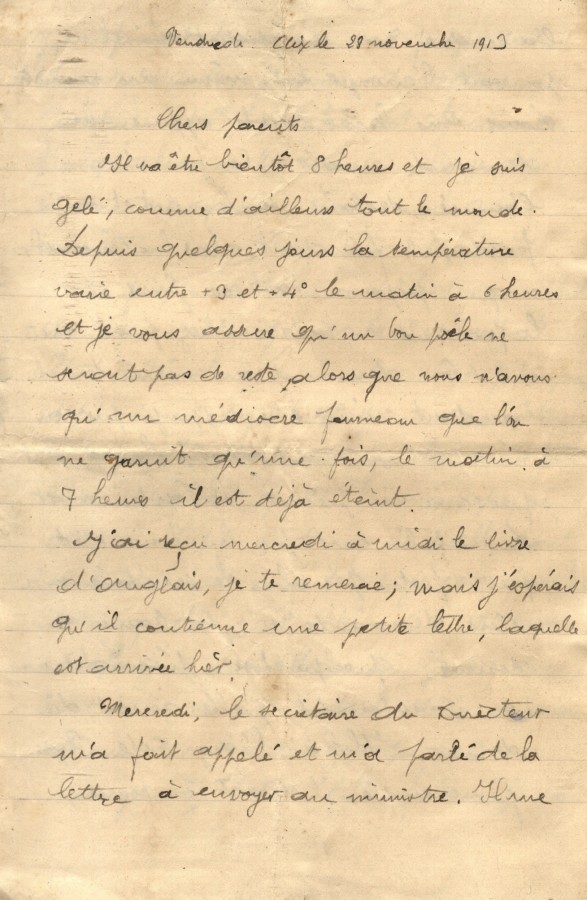 Vendredi Aix le 28 novembre 1913
Chers parents
Il va être bientôt 8 heures et je suis
gelé, comme d'ailleurs tout le monde.
Depuis quelques jours la température
varie entre +3 et +4° le matin à 6 heures
et je vous assure qu'un bon poêle ne
serait pas de reste, alors que nous n'avons
qu'un médiocre fourneau que l'on
ne garnit qu'une fois, le matin à
7 heures il est déjà éteint.
J'ai reçu mercredi à midi le livre
d'anglais, je te remercie ; mais j'espérais
qu'il contienne une petite lettre, laquelle
est arrivée hier.
Mercredi, le secrétaire du Directeur
m'a fait appelé et m'a parlé de la
lettre à envoyer au ministre. Il me